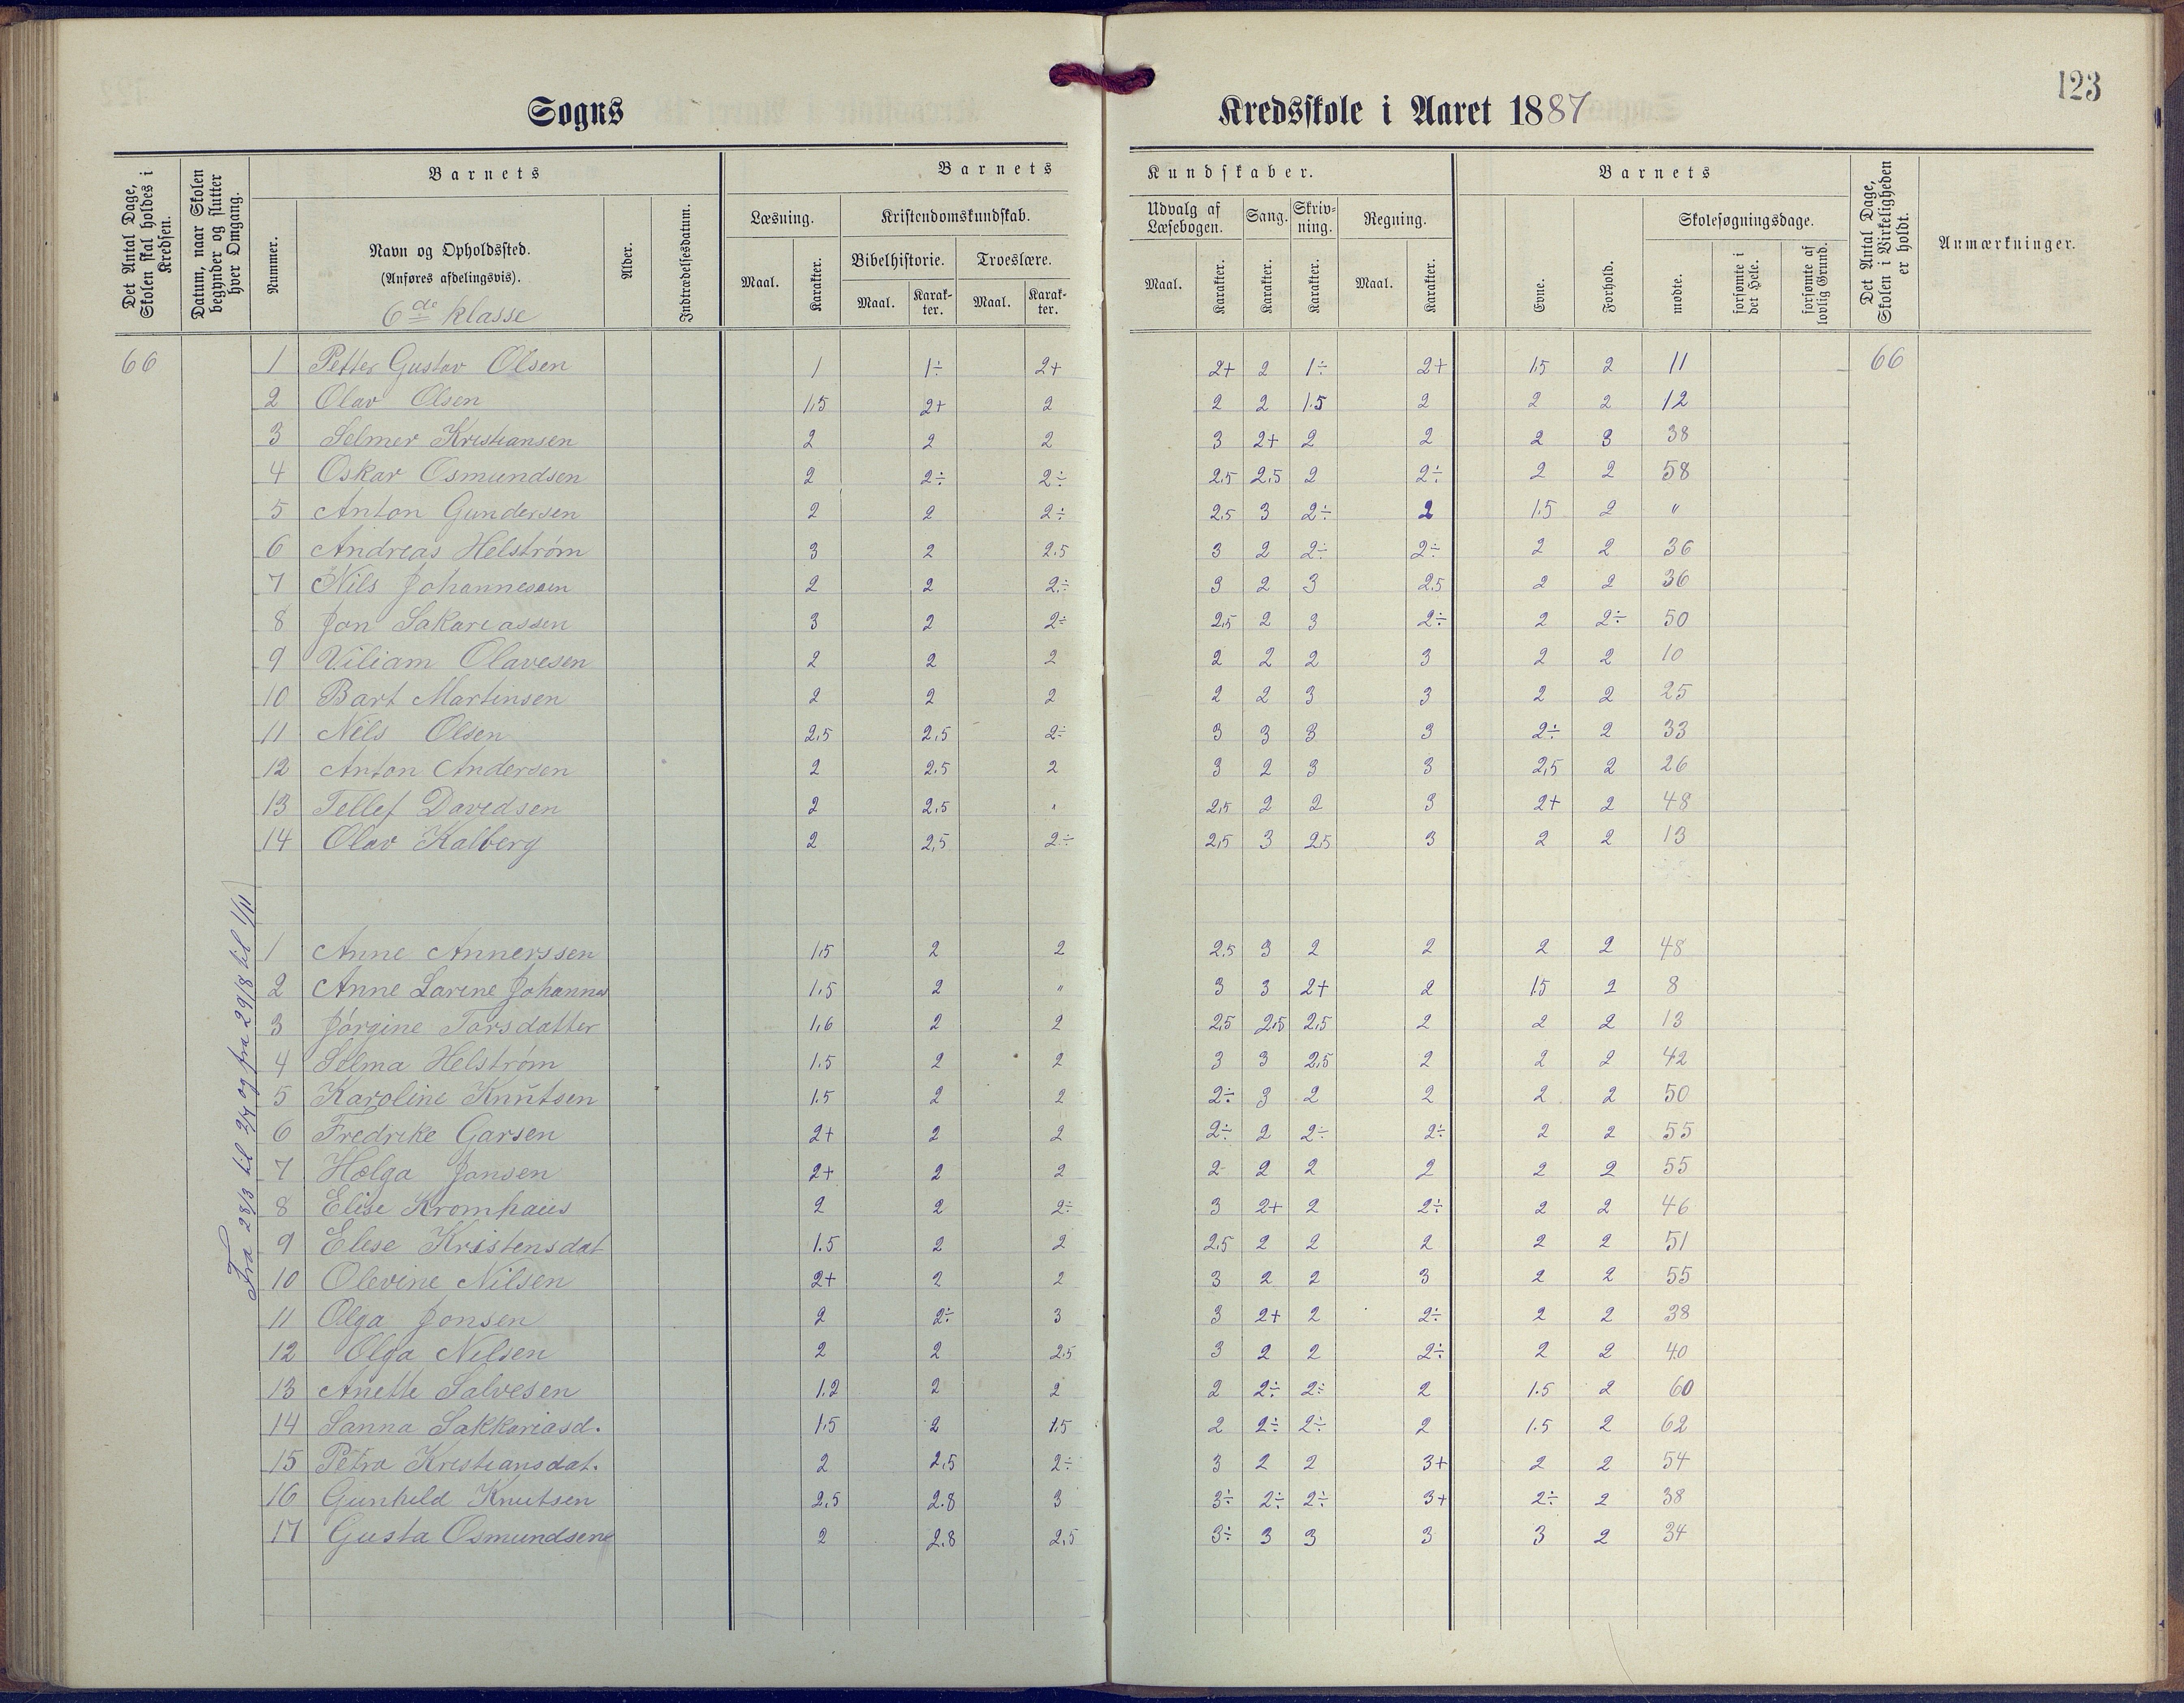 123
Sogns Kredsskole i Aaret 1887
Det Antal Dage, Skolen skal holdes i Kredsen.
Datum, naar Skolen begynder og slutter hver Omgang.
Barnets
Nummer.
Navn og Opholdssted.
(Anføres afdelingsvis).
6de Klasse
Alder.
Indtrædelsesdatum.
Barnets Kundskaber.
Læsning.
Maal. Karakter.
Kristendomskundskab.
Bibelhistorie. Troeslære.
Maal. Karakter. Maal. Karakter.
Udvalg af Læsebogen. Sang. Skrivning. Regning.
Maal. Karakter. Karakter. Karakter. Maal. Karakter.
Barnets
Evne. Forhold.
Skolesøgningsdage.
mødte. forsømte i det Hele. forsømte af lovlig Grund.
Det Antal Dage, Skolen i Virkeligheden er holdt.
Anmærkninger.
66 1 Petter Gustav Olsen 1 1÷ 2+ 2+ 2 1÷ 2+ 1,5 2 11 66
2 Olav Olsen 1,5 2+ 2 2 2 1.5 2 2 2 12
3 Selmer Kristiansen 2 2 2 3 2+ 2 2 2 3 38
4 Oskar Osmundsen 2 2÷ 2÷ 2,5 2,5 2 2÷ 2 2 58
5 Anton Gundersen 2 2 2÷ 2,5 3 2÷ 2 1.5 2 "
6 Andreas Helstrøm 3 2 2.5 3 2 2÷ 2÷ 2 2 36
7 Nils Johannesen 2 2 2÷ 3 2 3 2,5 2 2 36
8 Jon Sakariassen 3 2 2÷ 2,5 2 3 2÷ 2 2÷ 50
9 Viliam Olavesen 2 2 2 2 2 2 3 2 2 10
10 Bart Martinsen 2 2 2 2 2 3 3 2 2 25
11 Nils Olsen 2,5 2,5 2÷ 3 3 3 3 2÷ 2 33
12 Anton Andersen 2 2.5 2 3 2 3 3 2,5 2 26
13 Tellef Davedsen 2 2.5 " 2,5 2 2 3 2+ 2 48
14 Olav Kalberg 2 2,5 2÷ 2,5 3 2,5 3 2 2 13
Fra 28/3 til 2/7 og fra 29/8 til 1/11
1 Anne Annerssen 1,5 2 2 2.5 3 2 2 2 2 48
2 Anne Larine Johannes 1.5 2 " 3 3 2+ 2 1.5 2 8
3 Jørgine Torsdatter 1,6 2 2 2,5 2,5 2,5 2 2 2 13
4 Selma Helstrøm 1.5 2 2 3 3 2,5 2 2 2 42
5 Karoline Knutsen 1.5 2 2 2÷ 3 2 2 2 2 50
6 Fredrike Garsen 2+ 2 2 2÷ 2 2÷ 2÷ 2 2 55
7 Helga Jansen 2+ 2 2 2- 2 2 2 2 2 55
8 Elise Kromhaus 2 2 2÷ 3 2+ 2 2÷ 2 2 46
9 Elise Kristensdat 1.5 2 2 2.5 2 2 2 2 2 51
10 Olevine Nilsen 2+ 2 2 3 2 2 3 2 2 55
11 Olga Jonsen 2 2÷ 3 3 2+ 2 2÷ 2 2 38
12 Olga Nilsen 2 2 2.5 3 2 2 2÷ 2 2 40
13 Anette Salvesen 1.2 2 2 2 2÷ 2÷ 2 1.5 2 60
14 Sanna Sakkariasd. 1.5 2 1.5 2 2÷ 2÷ 2 1.5 2 62
15 Petra Kristiansdat. 2 2,5 2÷ 3 2 2 3+ 2 2 54
16 Gunhild Knutsen 2,5 2.8 3 3÷ 2÷ 2÷ 3+ 2÷ 2 38
17 Gusta Osmundsen 2 2.8 2,5 3÷ 3 3 3 3 2 34